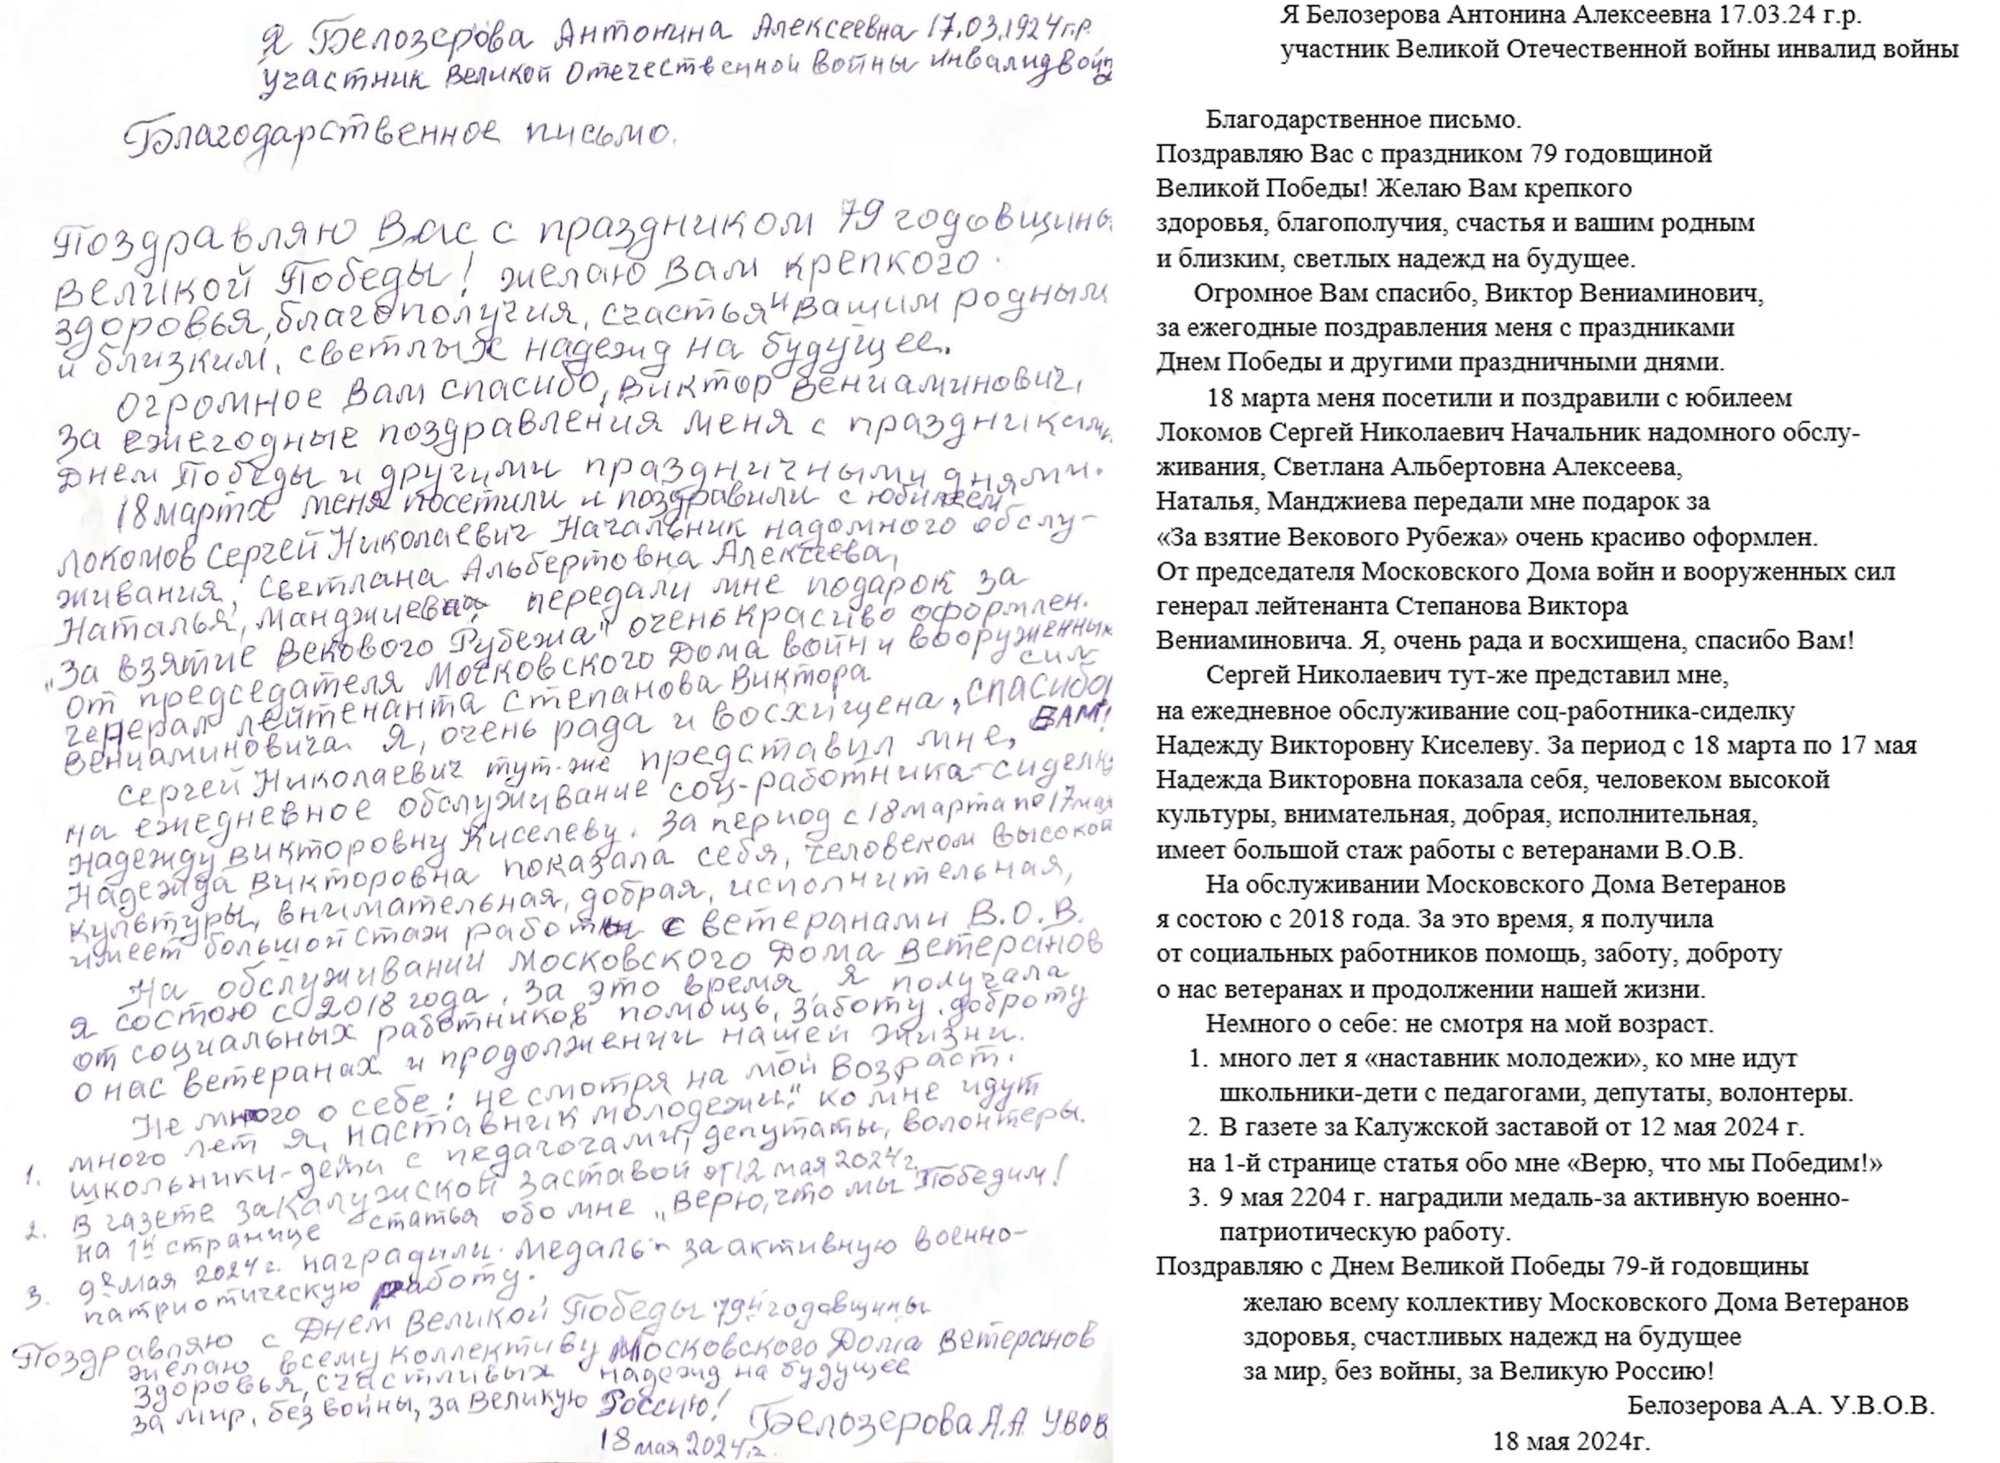 Я Белозерова Антонина Алексеевна 17.03.1924 г.р.
участник Великой Отечественной Войны инвалид войны
Благодарственное письмо.
Поздравляю Вас с праздником 79 годовщины
Великой Победы! желаю Вам крепкого
здоровья, благополучия, счастья и вашим родным
и близким, светлых надежд на будущее.
Огромное Вам спасибо, Виктор Вениаминович,
за ежегодные поздравления меня с праздниками
Днем Победы и другими праздничными днями.
18 марта меня посетили и поздравили с юбилеем
Локомов Сергей Николаевич Начальник надомного обслу-
живания, Светлана Альбертовна Алексеева,
Наталья, Манджиева, передали мне подарок за
„За взятие Векового Рубежа" очень красиво оформлен.
от председателя Московского Дома войн и вооруженных
сил
генерал лейтенанта Степанова Виктора
Вениаминовича. Я, очень рада и восхищена, спасибо
ВАМ!
Сергей Николаевич тут-же представил мне,
на ежедневное обслуживание соц-работника-сиделку
Надежду Викторовну Киселеву. За период с 18 марта по 17 мая
Надежда Викторовна показала себя, человеком высокой
культуры, внимательная, добрая, исполнительная,
имеет большой стаж работы с ветеранами В.О.В.
На обслуживании Московского Дома Ветеранов
я состою с 2018 года. За это время, я получала
от социальных работников помощь, заботу, доброту
о нас ветеранах и продолжении нашей жизни.
Не много о себе: не смотря на мой возраст.
1. много лет я „наставник молодежи". ко мне идут
школьники-дети с педагогами, депутаты, волонтеры.
2. В газете за Калужской заставой от 12 мая 2024 г.
на 1й странице статья обо мне „Верю, что мы Победим!
3. 9е мая 2024 г. наградили медаль- за активную военно-
патриотическую работу.
Поздравляю с Днем Великой Победы 79й годовщины
желаю всему коллективу Московского Дома Ветеранов
здоровья, счастливых надежд на будущее
за мир, без войны, за Великую Россию!
Белозерова А.А. УВОВ
18 мая 2024 г.
Я Белозерова Антонина Алексеевна 17.03.24 г.р.
участник Великой Отечественной войны инвалид войны
Благодарственное письмо.
Поздравляю Вас с праздником 79 годовщиной
Великой Победы! Желаю Вам крепкого
здоровья, благополучия, счастья и вашим родным
и близким, светлых надежд на будущее.
Огромное Вам спасибо, Виктор Вениаминович,
за ежегодные поздравления меня с праздниками
Днем Победы и другими праздничными днями.
18 марта меня посетили и поздравили с юбилеем
Локомов Сергей Николаевич Начальник надомного обслу-
живания, Светлана Альбертовна Алексеева,
Наталья, Манджиева передали мне подарок за
«За взятие Векового Рубежа» очень красиво оформлен.
От председателя Московского Дома войн и вооруженных сил
генерал лейтенанта Степанова Виктора
Вениаминовича. Я, очень рада и восхищена, спасибо Вам!
Сергей Николаевич тут-же представил мне,
на ежедневное обслуживание соц-работника-сиделку
Надежду Викторовну Киселеву. За период с 18 марта по 17 мая
Надежда Викторовна показала себя, человеком высокой
культуры, внимательная, добрая, исполнительная,
имеет большой стаж работы с ветеранами В.О.В.
На обслуживании Московского Дома Ветеранов
я состою с 2018 года. За это время, я получила
от социальных работников помощь, заботу, доброту
о нас ветеранах и продолжении нашей жизни.
Немного о себе: не смотря на мой возраст.
1. много лет я «наставник молодежи», ко мне идут
школьники-дети с педагогами, депутаты, волонтеры.
2. В газете за Калужской заставой от 12 мая 2024 г.
на 1-й странице статья обо мне «Верю, что мы Победим!»
3. 9 мая 2204 г. наградили медаль-за активную военно-
патриотическую работу.
Поздравляю с Днем Великой Победы 79-й годовщины
желаю всему коллективу Московского Дома Ветеранов
здоровья, счастливых надежд на будущее
за мир, без войны, за Великую Россию!
Белозерова А.А. У.В.О.В.
18 мая 2024г.